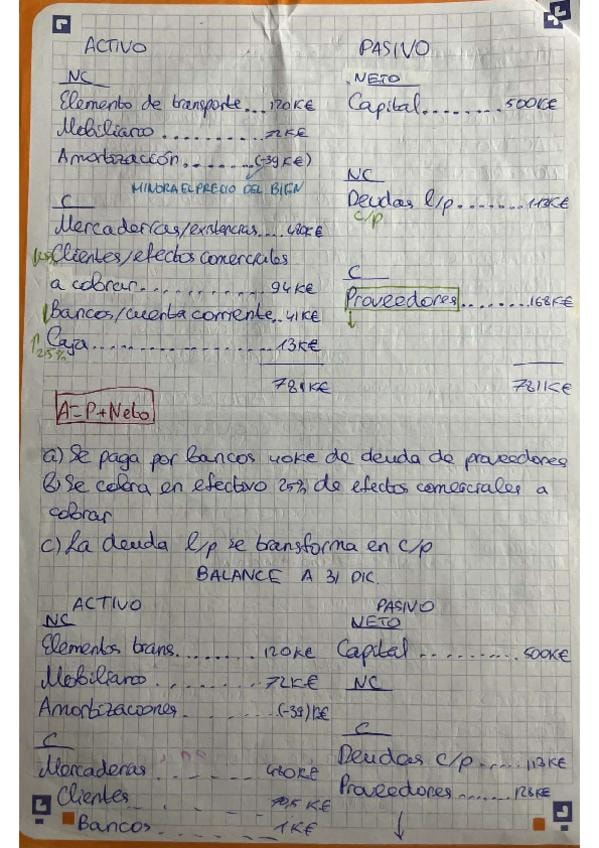 ACTIVO PASIVO
NC NETO
Elemento de transporte...120K€ Capital........500K€
Mobiliario..........72K€
Amortización.......(-39K€)
MINORA EL PRECIO DEL BIEN
NC
Deudas l/p.......113K€
c/p
C
Mercadericas/existencias....480K€
Clientes/efectos comerciales
a cobrar...........94K€
C
Proveedores.......168K€
Bancos/cuenta corriente..41K€
↑ Caja....................13K€
25%
781K€ 781K€
A=P+Neto
a) Se paga por bancos 40K€ de deuda de proveedores
b) Se cobra en efectivo 25% de efectos comerciales a
cobrar
c) La deuda l/p se transforma en c/p
BALANCE A 31 DIC.
ACTIVO PASIVO
NC NETO
Elementos trans.........120K€ Capital...........500K€
Mobiliario..........72K€ NC
Amortizaciones.......(-39)K€
C C
Mercaderas..........480K€ Deudas c/p......113K€
Clientes......70,5 K€ Proveedores.......128K€
Bancos..........1K€